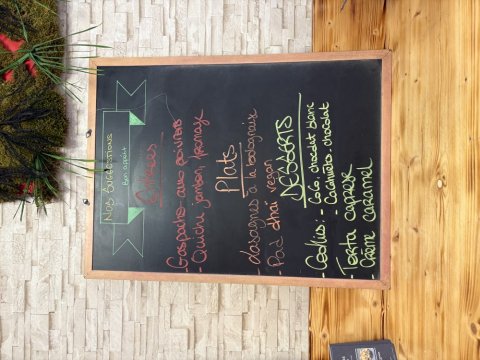 NOS SUGGESTIONS
Bon appétit
Entrées
- Gaspacho aux poivrons
- Quiche jambon, fromage
Plats
- Lasagnes à la bolognaise
- Pad thaï vegan
DESSERTS
- Cookies: - Coco, chocolat blanc
- Cacahuètes, chocolat
- Torta caprese
- Crème caramel